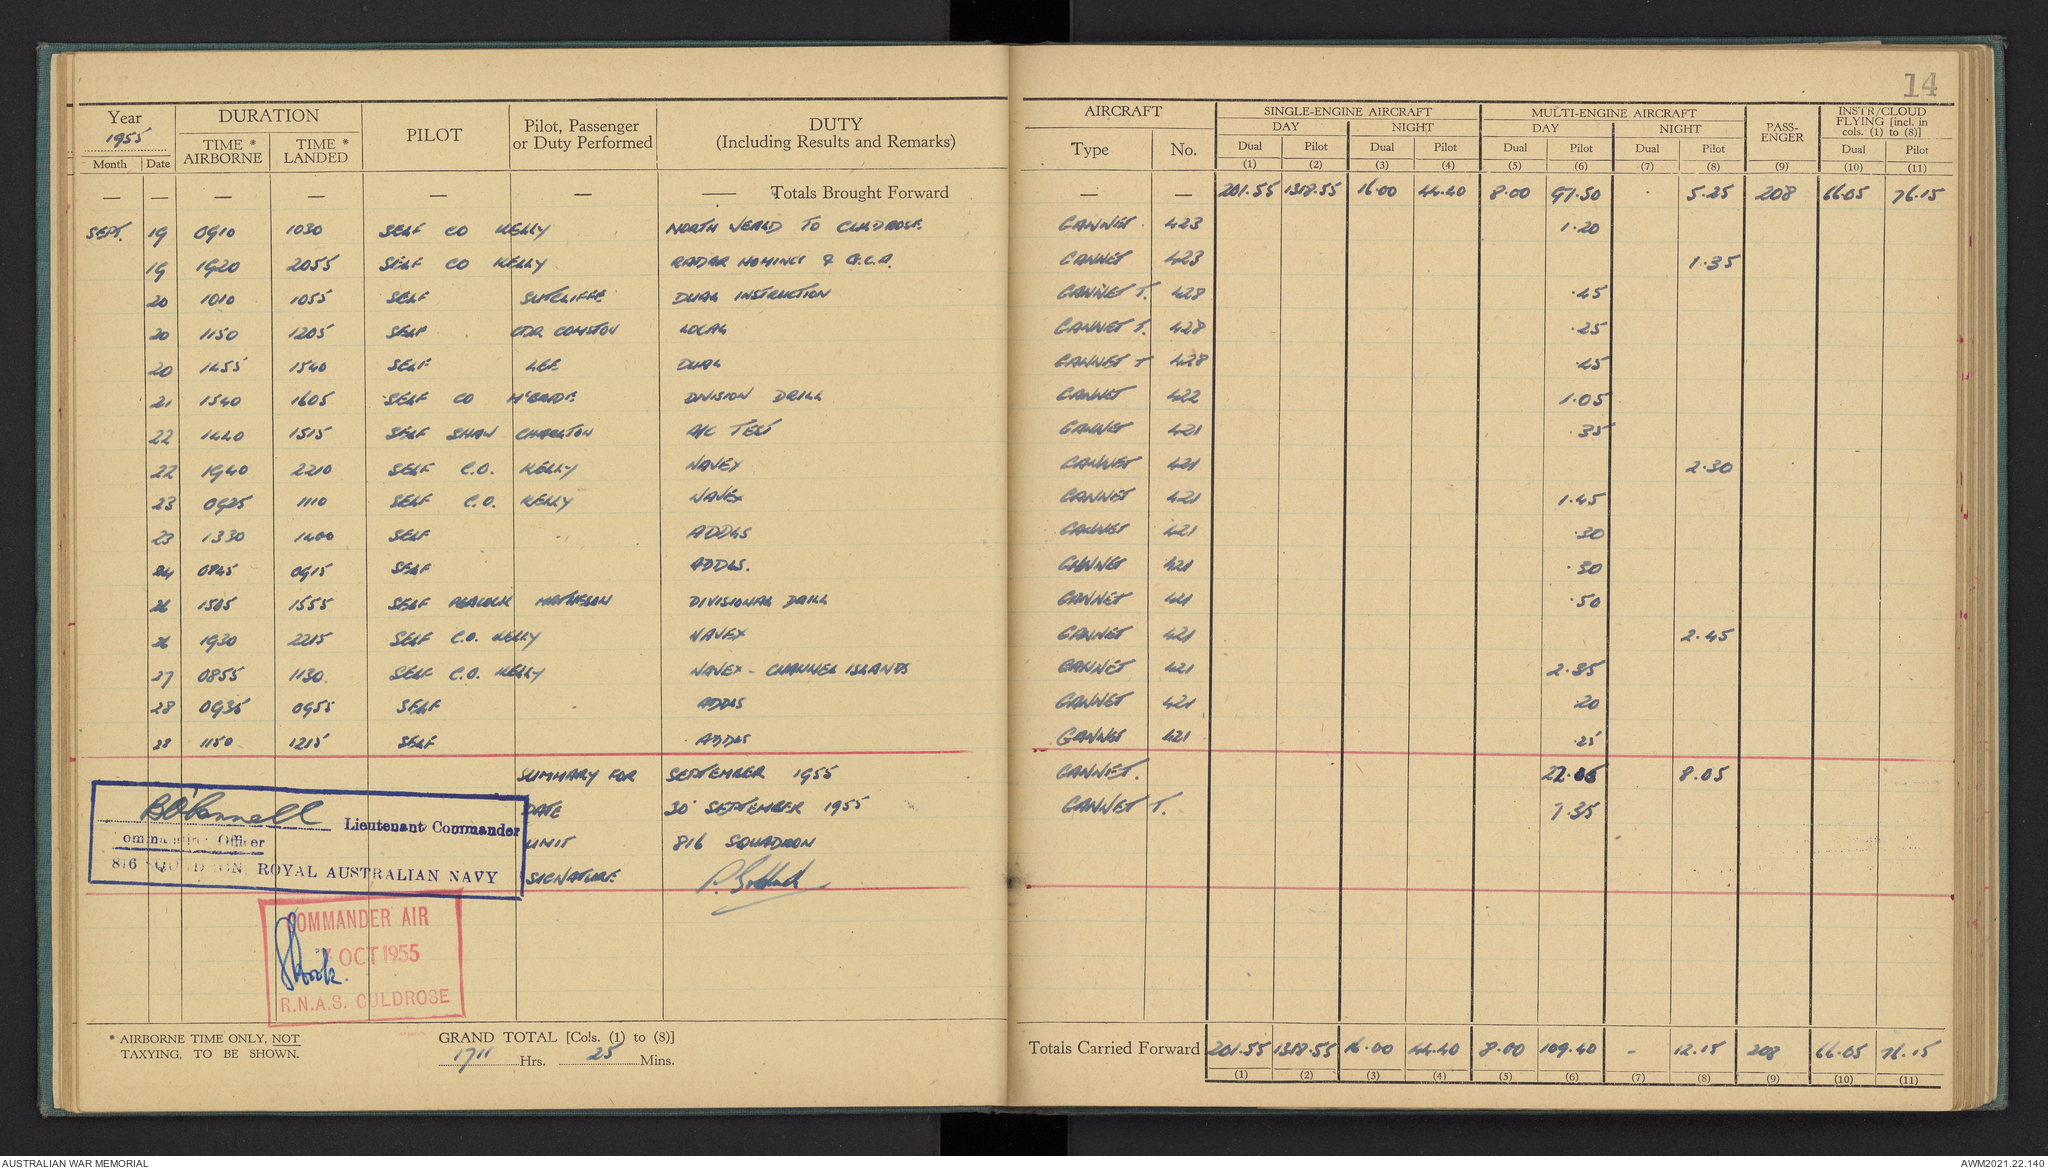 14
Year 1955 DURATION PILOT Pilot, Passenger or Duty Performed DUTY (Including Results and Remarks) AIRCRAFT SINGLE-ENGINE AIRCRAFT MULTI-ENGINE AIRCRAFT PASS-ENGER INSTR/CLOUD FLYING [incl. in cols. (1) to (8)]
Month Date TIME * AIRBORNE TIME * LANDED Type No. DAY NIGHT DAY NIGHT
Dual Pilot Dual Pilot Dual Pilot Dual Pilot Dual Pilot
(1) (2) (3) (4) (5) (6) (7) (8) (9) (10) (11)
— — — — — — — Totals Brought Forward — — 201.55 1318.55 16.00 44.40 8.00 97.50 . 5.25 208 66.05 76.15
SEPT. 19 0910 1030 SELF CO KELLY NORTH WEALD TO CULDROSE GANNET 423 1.20
19 1920 2055 SELF CO KELLY RADAR HOMINGS & G.C.A. GANNET 423 1.35
20 1010 1055 SELF SUTCLIFFE DUAL INSTRUCTION GANNET T. 428 .45
20 1150 1205 SELF CDR LOCAL GANNET T. 428 .25
20 1455 1540 SELF LEE DUAL GANNET T 428 .45
21 1540 1605 SELF CO McBRIDE DIVISION DRILL GANNET 422 1.05
22 1440 1515 SELF SHAW CHARLTON A/C TEST GANNET 421 35
22 1940 2210 SELF C.O. KELLY NAVEX GANNET 421 2.30
23 0925 1110 SELF C.O. KELLY NAVEX GANNET 421 1.45
23 1330 1400 SELF ADDLS GANNET 421 .30
24 0845 0915 SELF ADDLS. GANNET 421 .30
26 1505 1555 SELF PEACOCK MATHESON DIVISIONAL DRILL GANNET 421 .50
26 1930 2215 SELF C.O. KELLY NAVEX GANNET 421 2.45
27 0855 1130 SELF C.O. KELLY NAVEX - CHANNEL ISLANDS GANNET 421 2.35
28 0935 0955 SELF ADDLS GANNET 421 20
28 1150 1215 SELF ADDLS GANNET 421 .25
SUMMARY FOR SEPTEMBER 1955 GANNET. 22.05 8.05
DATE 30 SEPTEMBER 1955 GANNET T. 7.35
UNIT 816 SQUADRON
SIGNATURE
Lieutenant Commander
Commanding Officer
816 SQUADRON, ROYAL AUSTRALIAN NAVY
COMMANDER AIR
OCT 1955
R.N.A.S. CULDROSE
* AIRBORNE TIME ONLY, NOT TAXYING, TO BE SHOWN.
GRAND TOTAL [Cols. (1) to (8)]
1711 Hrs. 25 Mins.
Totals Carried Forward 201.55 1318.55 16.00 44.40 8.00 109.40 - 12.15 208 66.05 76.15
(1) (2) (3) (4) (5) (6) (7) (8) (9) (10) (11)
AUSTRALIAN WAR MEMORIAL
AWM2021.22.140